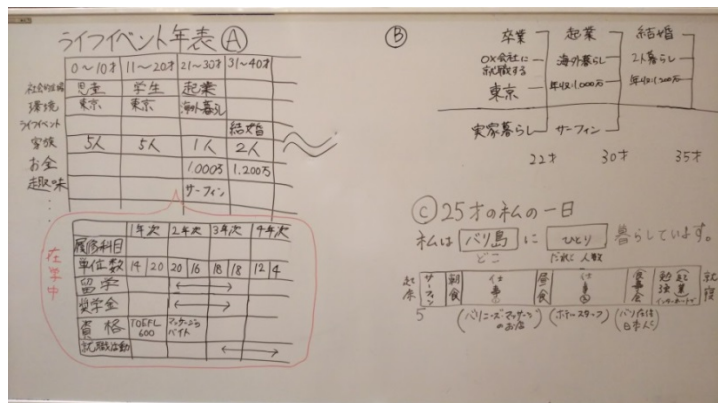 ライフイベント年表 Ⓐ
0〜10才 11〜20才 21〜30才 31〜40才
社会的立場 児童 学生 起業
環境 東京 東京 海外暮らし
ライフイベント 結婚
家族 5人 5人 1人 2人
お金 1.000万 1.200万
趣味 サーフィン
在学中
1年次 2年次 3年次 4年次
履修科目
単位数 14 20 20 16 18 18 12 4
留学
奨学金
資格 TOEFL 600 マッサージ バイト
就職活動
Ⓑ
卒業 起業 結婚
OX会社に就職する 海外暮らし 2人暮らし
東京 年収1,000万 年収1,200万
実家暮らし サーフィン
22才 30才 35才
Ⓒ 25才の私の一日
私は バリ島 に ひとり 暮らしています。
どこ だれと 人数
起床 サーフィン 朝食 仕事 昼食 仕事 食事会 勉強 就寝
5 (バリニーズマッサージのお店) (日本人と)